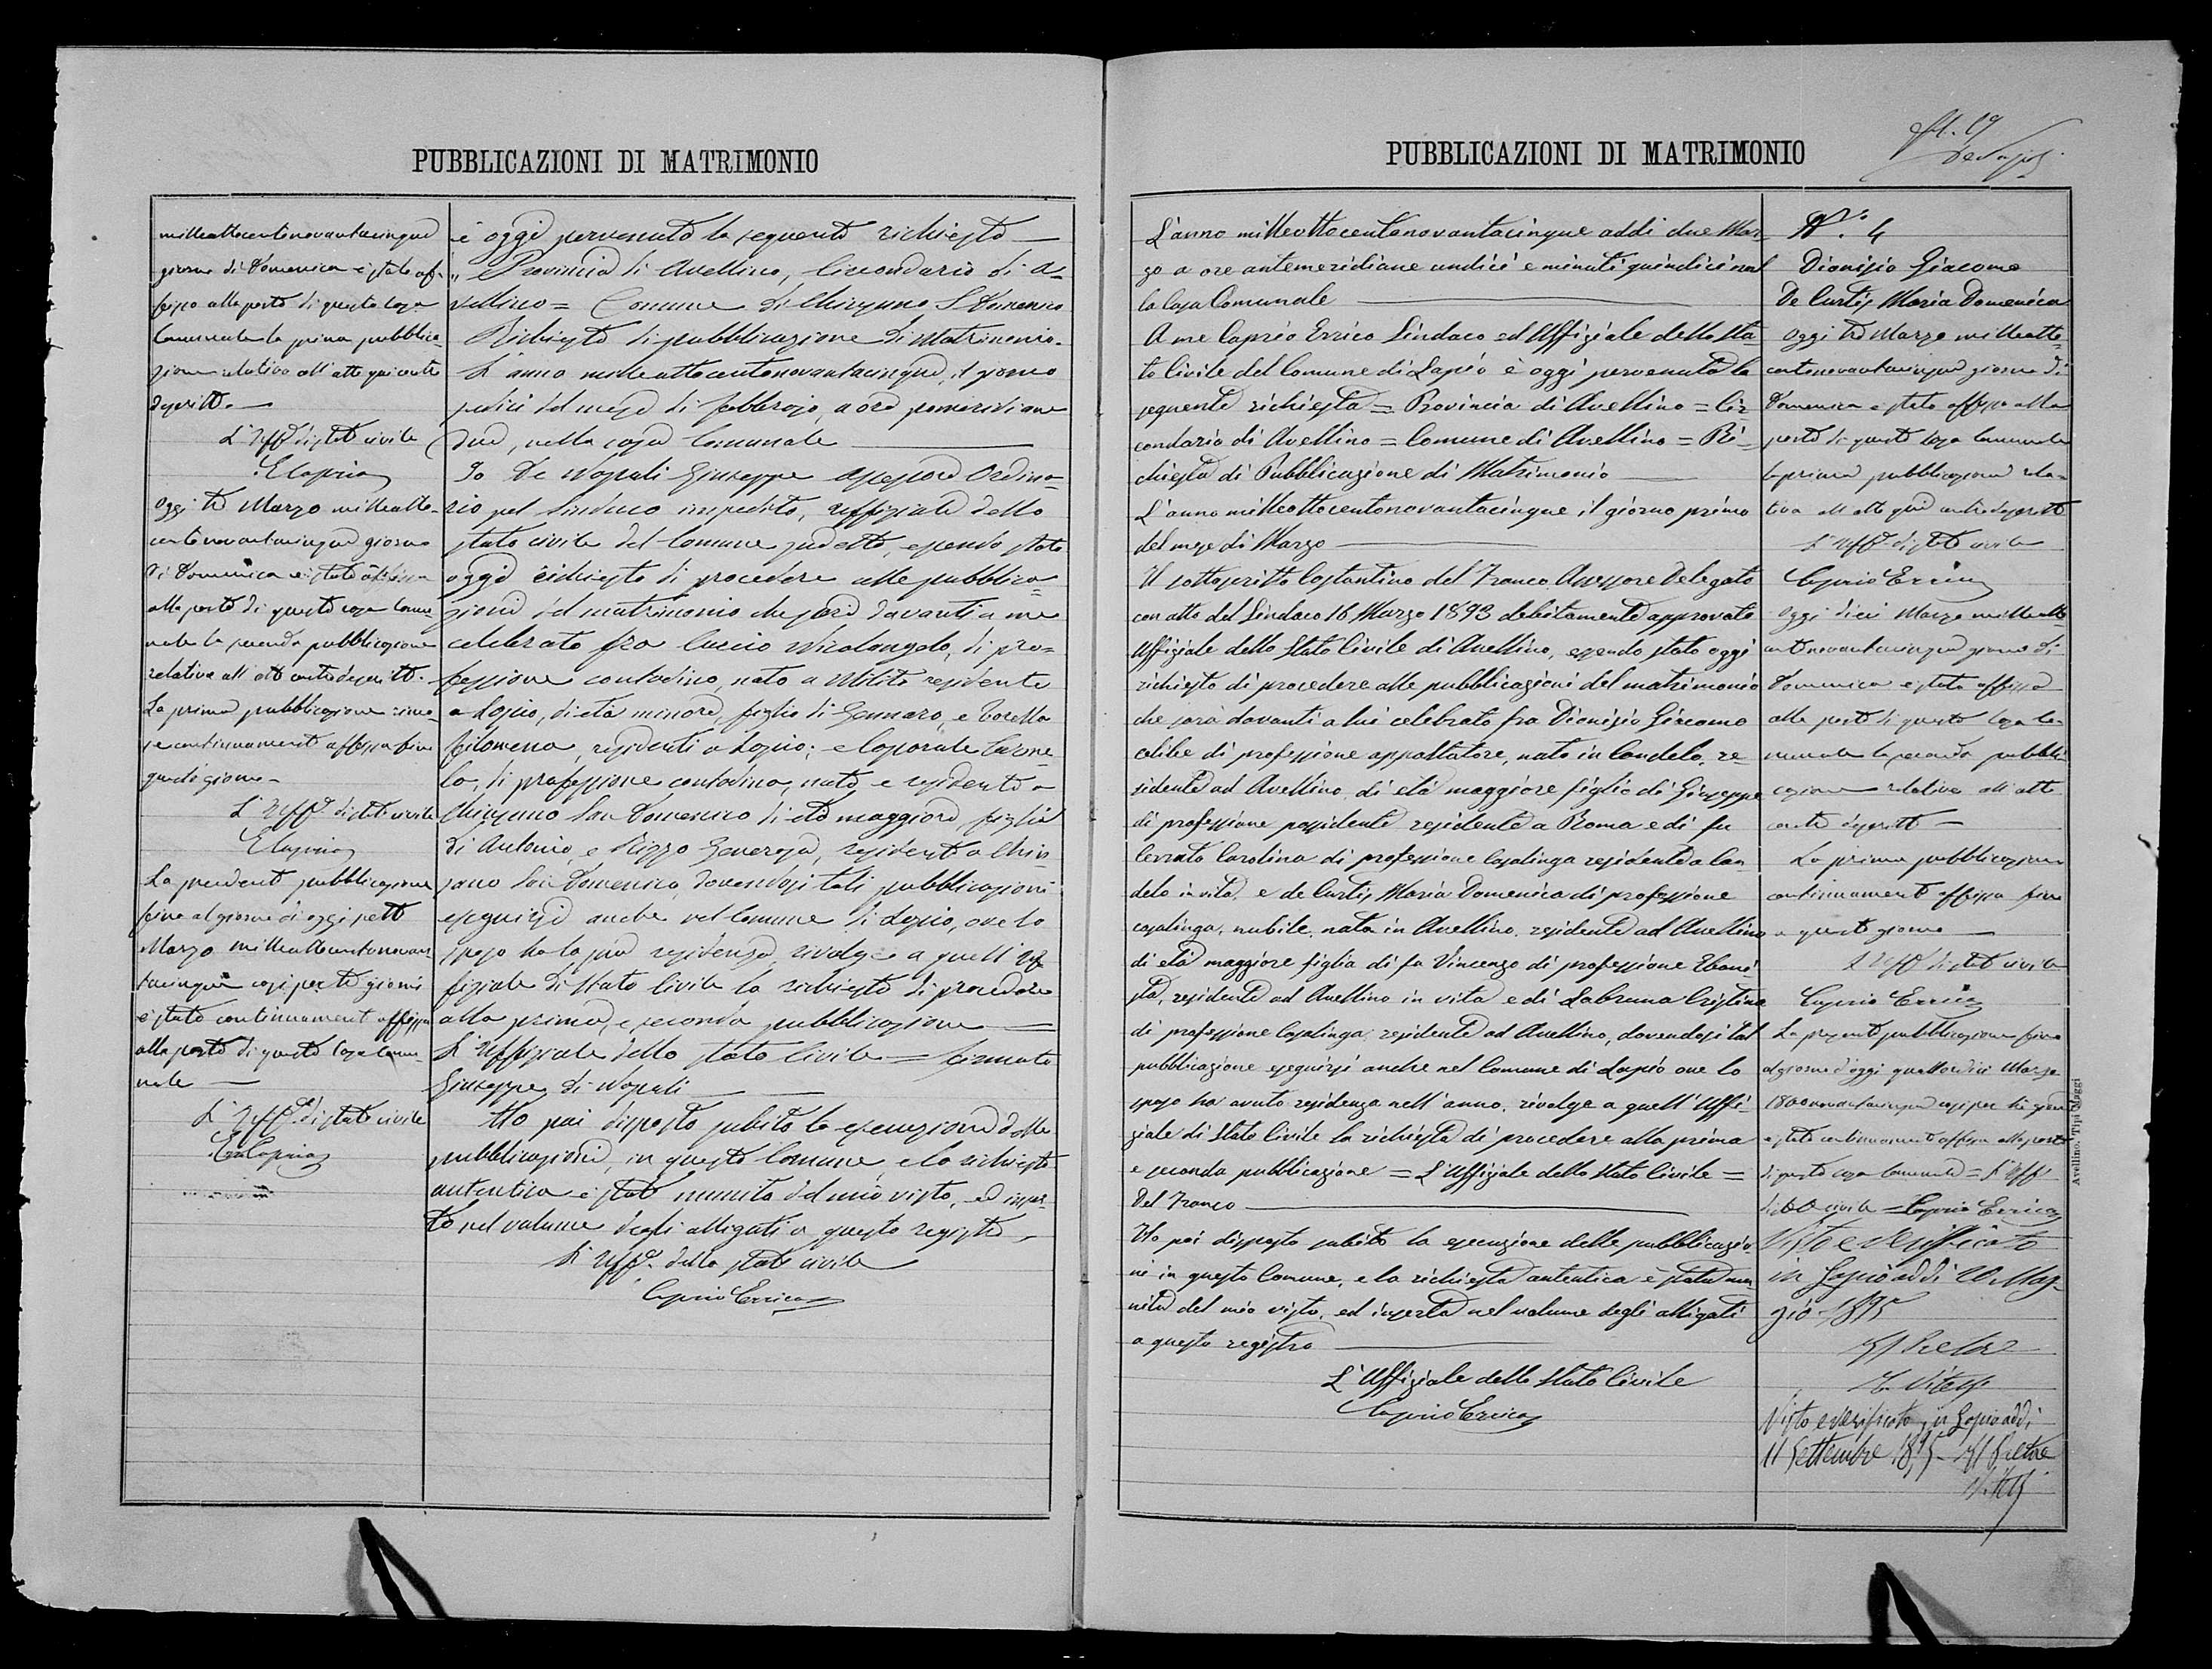 PUBBLICAZIONI DI MATRIMONIO
milleottocentonovantacinque
giorno di Domenica è stata af-
fissa alla porta di questa Casa
Comunale la prima pubblica-
zione relativa all'atto qui contro
descritto —
L'Uff. di stato civile
E Caprio
Oggi tre Marzo milleotto-
centonovantacinque giorno
di Domenica è stata affissa
alla porta di questa casa Comu-
nale la seconda pubblicazione
relativa all'atto contro descritto.
La prima pubblicazione rima-
se continuamente affissa fino
questo giorno —
L'Uff. di stato civile
E Caprio
La presente pubblicazione
fino al giorno di oggi sette
Marzo milleottocentonovan-
tacinque così per tre giorni
è stata continuamente affissa
alla porta di questa Casa Comu-
nale —
L'Uff. di stato civile
E Caprio
è oggi pervenuta la seguente richiesta —
" Provincia di Avellino, Circondario di A-
vellino = Comune di Chiusano S Domenico
Richiesta di pubblicazione di Matrimonio.
L'anno milleottocentonovantacinque, il giorno
sedici del mese di febbrajo, a ore pomeridiane
due, nella casa Comunale —
Io De Napoli Giuseppe Assessore Ordina-
rio pel Sindaco impedito, uffiziale dello
stato civile del Comune sudetto, essendo stato
oggi richiesto di procedere alle pubblica-
zioni del matrimonio che sarà davanti a me
celebrato fra Ciccio Nicolangelo, di pro-
fessione contadino, nato a Melito residente
a Lapio, di età minore, figlio di Gennaro, e Torella
Filomena, residenti a Lapio; e Caporale Carme-
la, di professione contadina, nata e residente a
Chiusano San Domenico di età maggiore, figlia
di Antonio, e Rizzo Generosa, residenti a Chiu
sano San Domenico, dovendosi tali pubblicazioni
eseguirsi anche nel Comune di Lapio, ove lo
sposo ha la sua residenza, rivolge a quell'Uf
fiziale di Stato Civile la richiesta di procedere
alla prima, e seconda pubblicazione —
L'Uffiziale dello stato Civile = firmato
Giuseppe di Napoli —
Ho poi disposto subito la esecuzione delle
pubblicazioni, in questo Comune e la richiesta
autentica è stata munita del mio visto, ed inser-
ta nel volume degli allegati a questo registro,
L'Uff. dello stato civile
Caprio Errico
PUBBLICAZIONI DI MATRIMONIO
L'anno milleottocentonovantacinque addi due Mar-
zo a ore antemeridiane undici e minuti quindici nel
la Casa Comunale —
A me Caprio Errico Sindaco ed Uffiziale dello Sta-
to Civile del Comune di Lapio è oggi pervenuta la
seguente richiesta = Provincia di Avellino = Cir
condario di Avellino = Comune di Avellino = Ri-
chiesta di Pubblicazione di Matrimonio —
L'anno milleottocentonovantacinque il giorno primo
del mese di Marzo —
Il sottoscritto Costantino del Franco Assessore Delegato
con atto del Sindaco 16 Marzo 1893 debitamente approvato
Uffiziale dello Stato Civile di Avellino, essendo stato oggi
richiesto di procedere alle pubblicazioni del matrimonio
che sarà davanti a lui celebrato fra Dionisio Giacomo
celibe di professione appaltatore, nato in Candelo, re-
sidente ad Avellino, di età maggiore figlio di Giuseppe
di professione possidente residente a Roma e di fu
Cerrato Carolina di professione Casalinga residente a Can
delo in vita, e de Curtis Maria Domenica di professione
casalinga, nubile, nata in Avellino, residente ad Avellino
di età maggiore figlia di fu Vincenzo di professione Ebani-
sta, residente ad Avellino in vita e di Labruna Cristina
di professione Casalinga residente ad Avellino, dovendosi tal
pubblicazione eseguirsi anche nel Comune di Lapio ove lo
sposo ha avuto residenza nell'anno, rivolge a quell'Uffi-
ziale di Stato Civile la richiesta di procedere alla prima
e seconda pubblicazione = L'Uffiziale dello Stato Civile =
Del Franco —
Ho poi disposto subito la esecuzione delle pubblicazio-
ni in questo Comune, e la richiesta autentica è stata mu
nita del mio visto, ed inserta nel volume degli allegati
a questo registro —
L'Uffiziale dello Stato Civile
Caprio Errico
N. 4
Dionisio Giacomo
De Curtis Maria Domenica
Oggi tre Marzo milleotto-
centonovantacinque giorno di
Domenica è stata affissa alla
porta di questa Casa Comunale
la prima pubblicazione rela-
tiva all'atto qui contro descritto
L'Uff. di stato civile
Caprio Errico
Oggi dieci Marzo milleotto
centonovantacinque giorno di
Domenica è stata affissa
alla porta di questa Casa Co-
munale la seconda pubbli-
cazione relativa all'atto
contro descritto —
La prima pubblicazione
continuamente affissa fino
a questo giorno —
L'Uff. di stato civile
Caprio Errico
La presente pubblicazione fino
al giorno d'oggi quattordici Marzo
1800novantacinque così per tre giorni
è stata continuamente affissa alla porta
di questa casa Comunale = L'Uff.
di stato civile = Caprio Errico
Visto e verificato
in Lapio addì 20 Mag-
gio 1895
Il Pretore
Visto e verificato in Lapio addì
11 Settembre 1895 Il Pretore
Avellino, Tip. Maggi